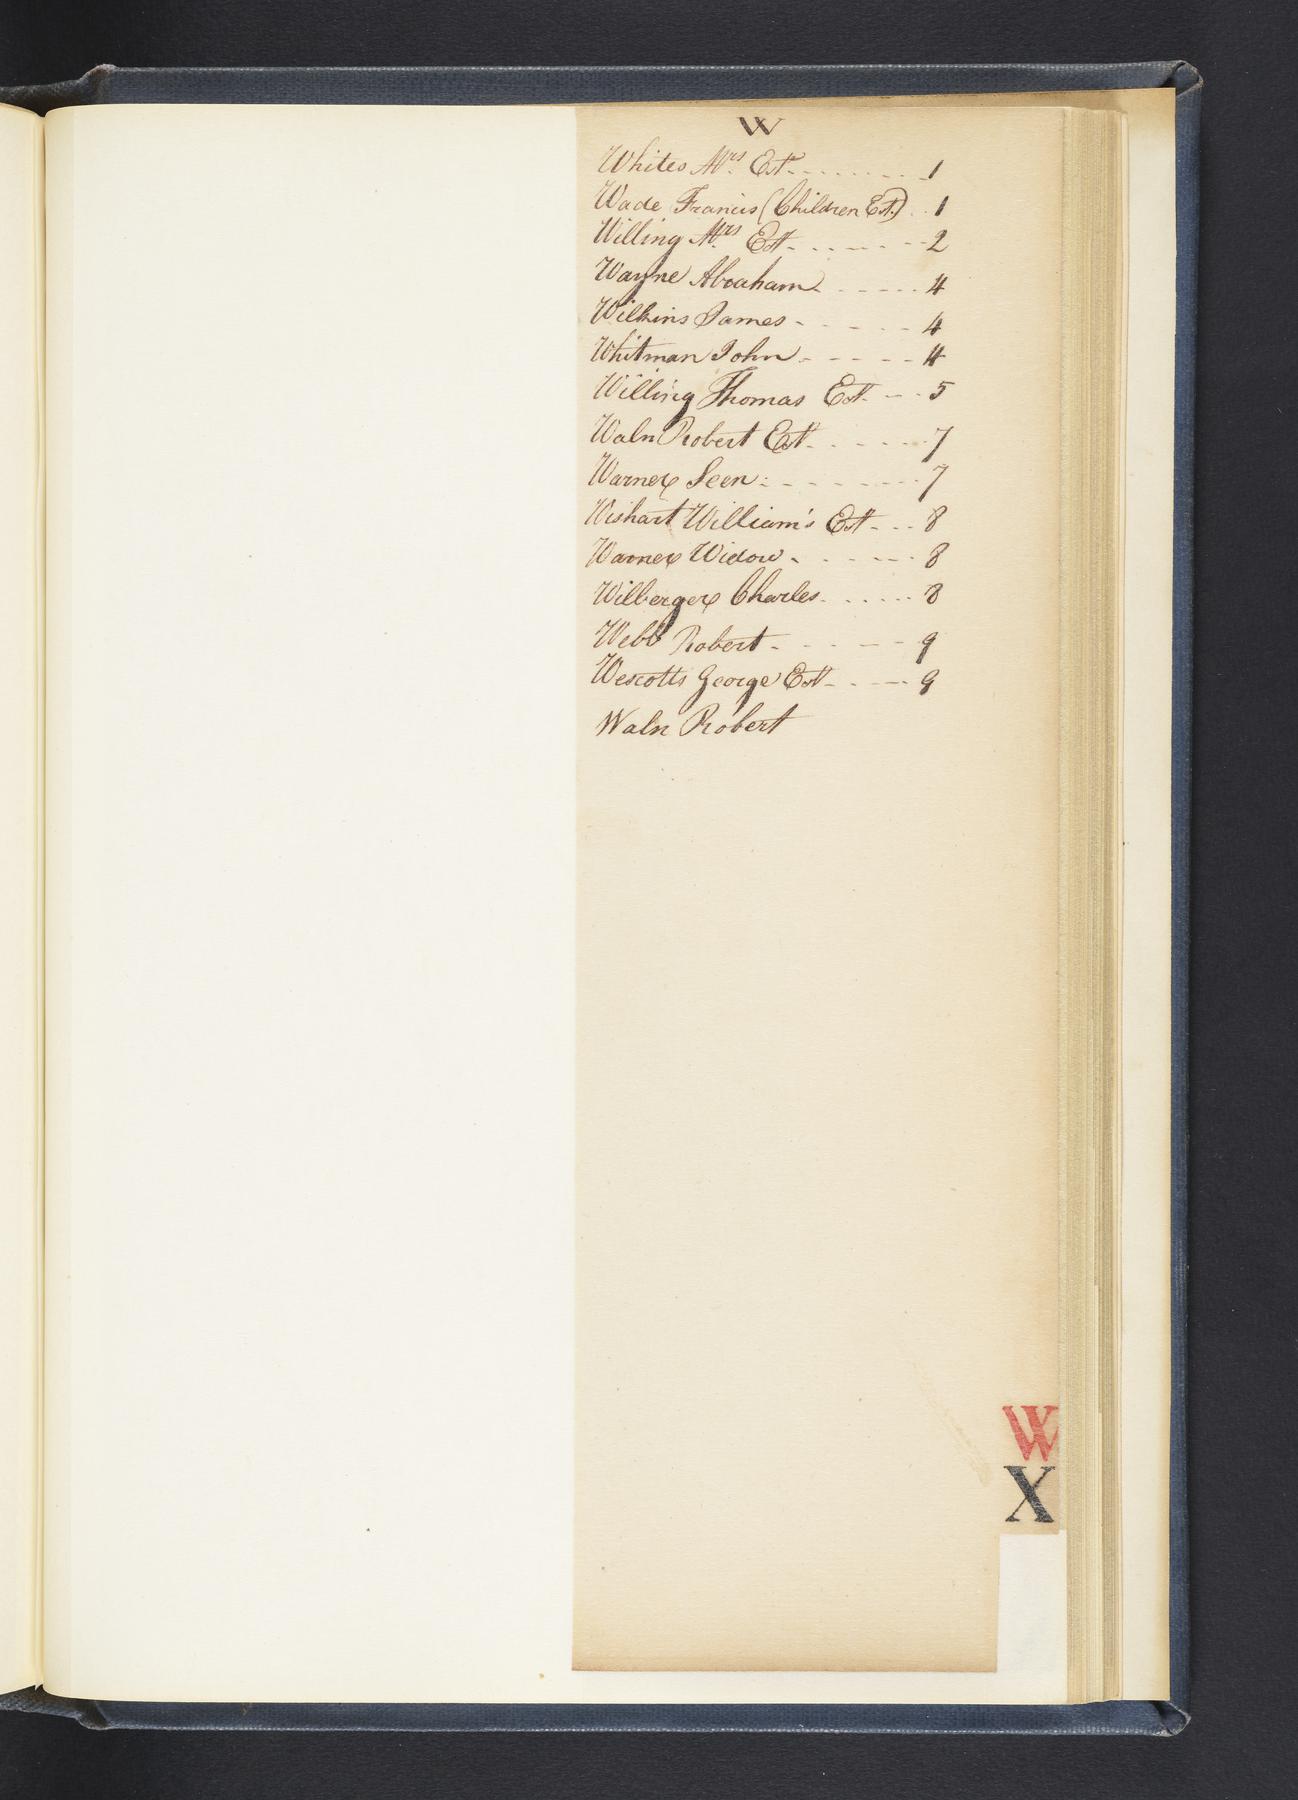 W
Whites Mrs. Est. - - - - - - - - 1
Wade Francis (Children Est.) . . 1
Willing Mrs. Est. - - - - - - - 2
Wayne Abraham - - - - - - 4
Wilkins James - - - - - - 4
Whitman John - - - - - 4
Willing Thomas Est. - - - 5
Waln Robert Est. - - - - - 7
Warner Seen - - - - - - - 7
Wishart William's Est. - - - 8
Warner Widow - - - - - - 8
Wilberger Charles - - - - - 8
Webb Robert - - - - - - 9
Wescotts George Est. - - - - 9
Waln Robert
W
X